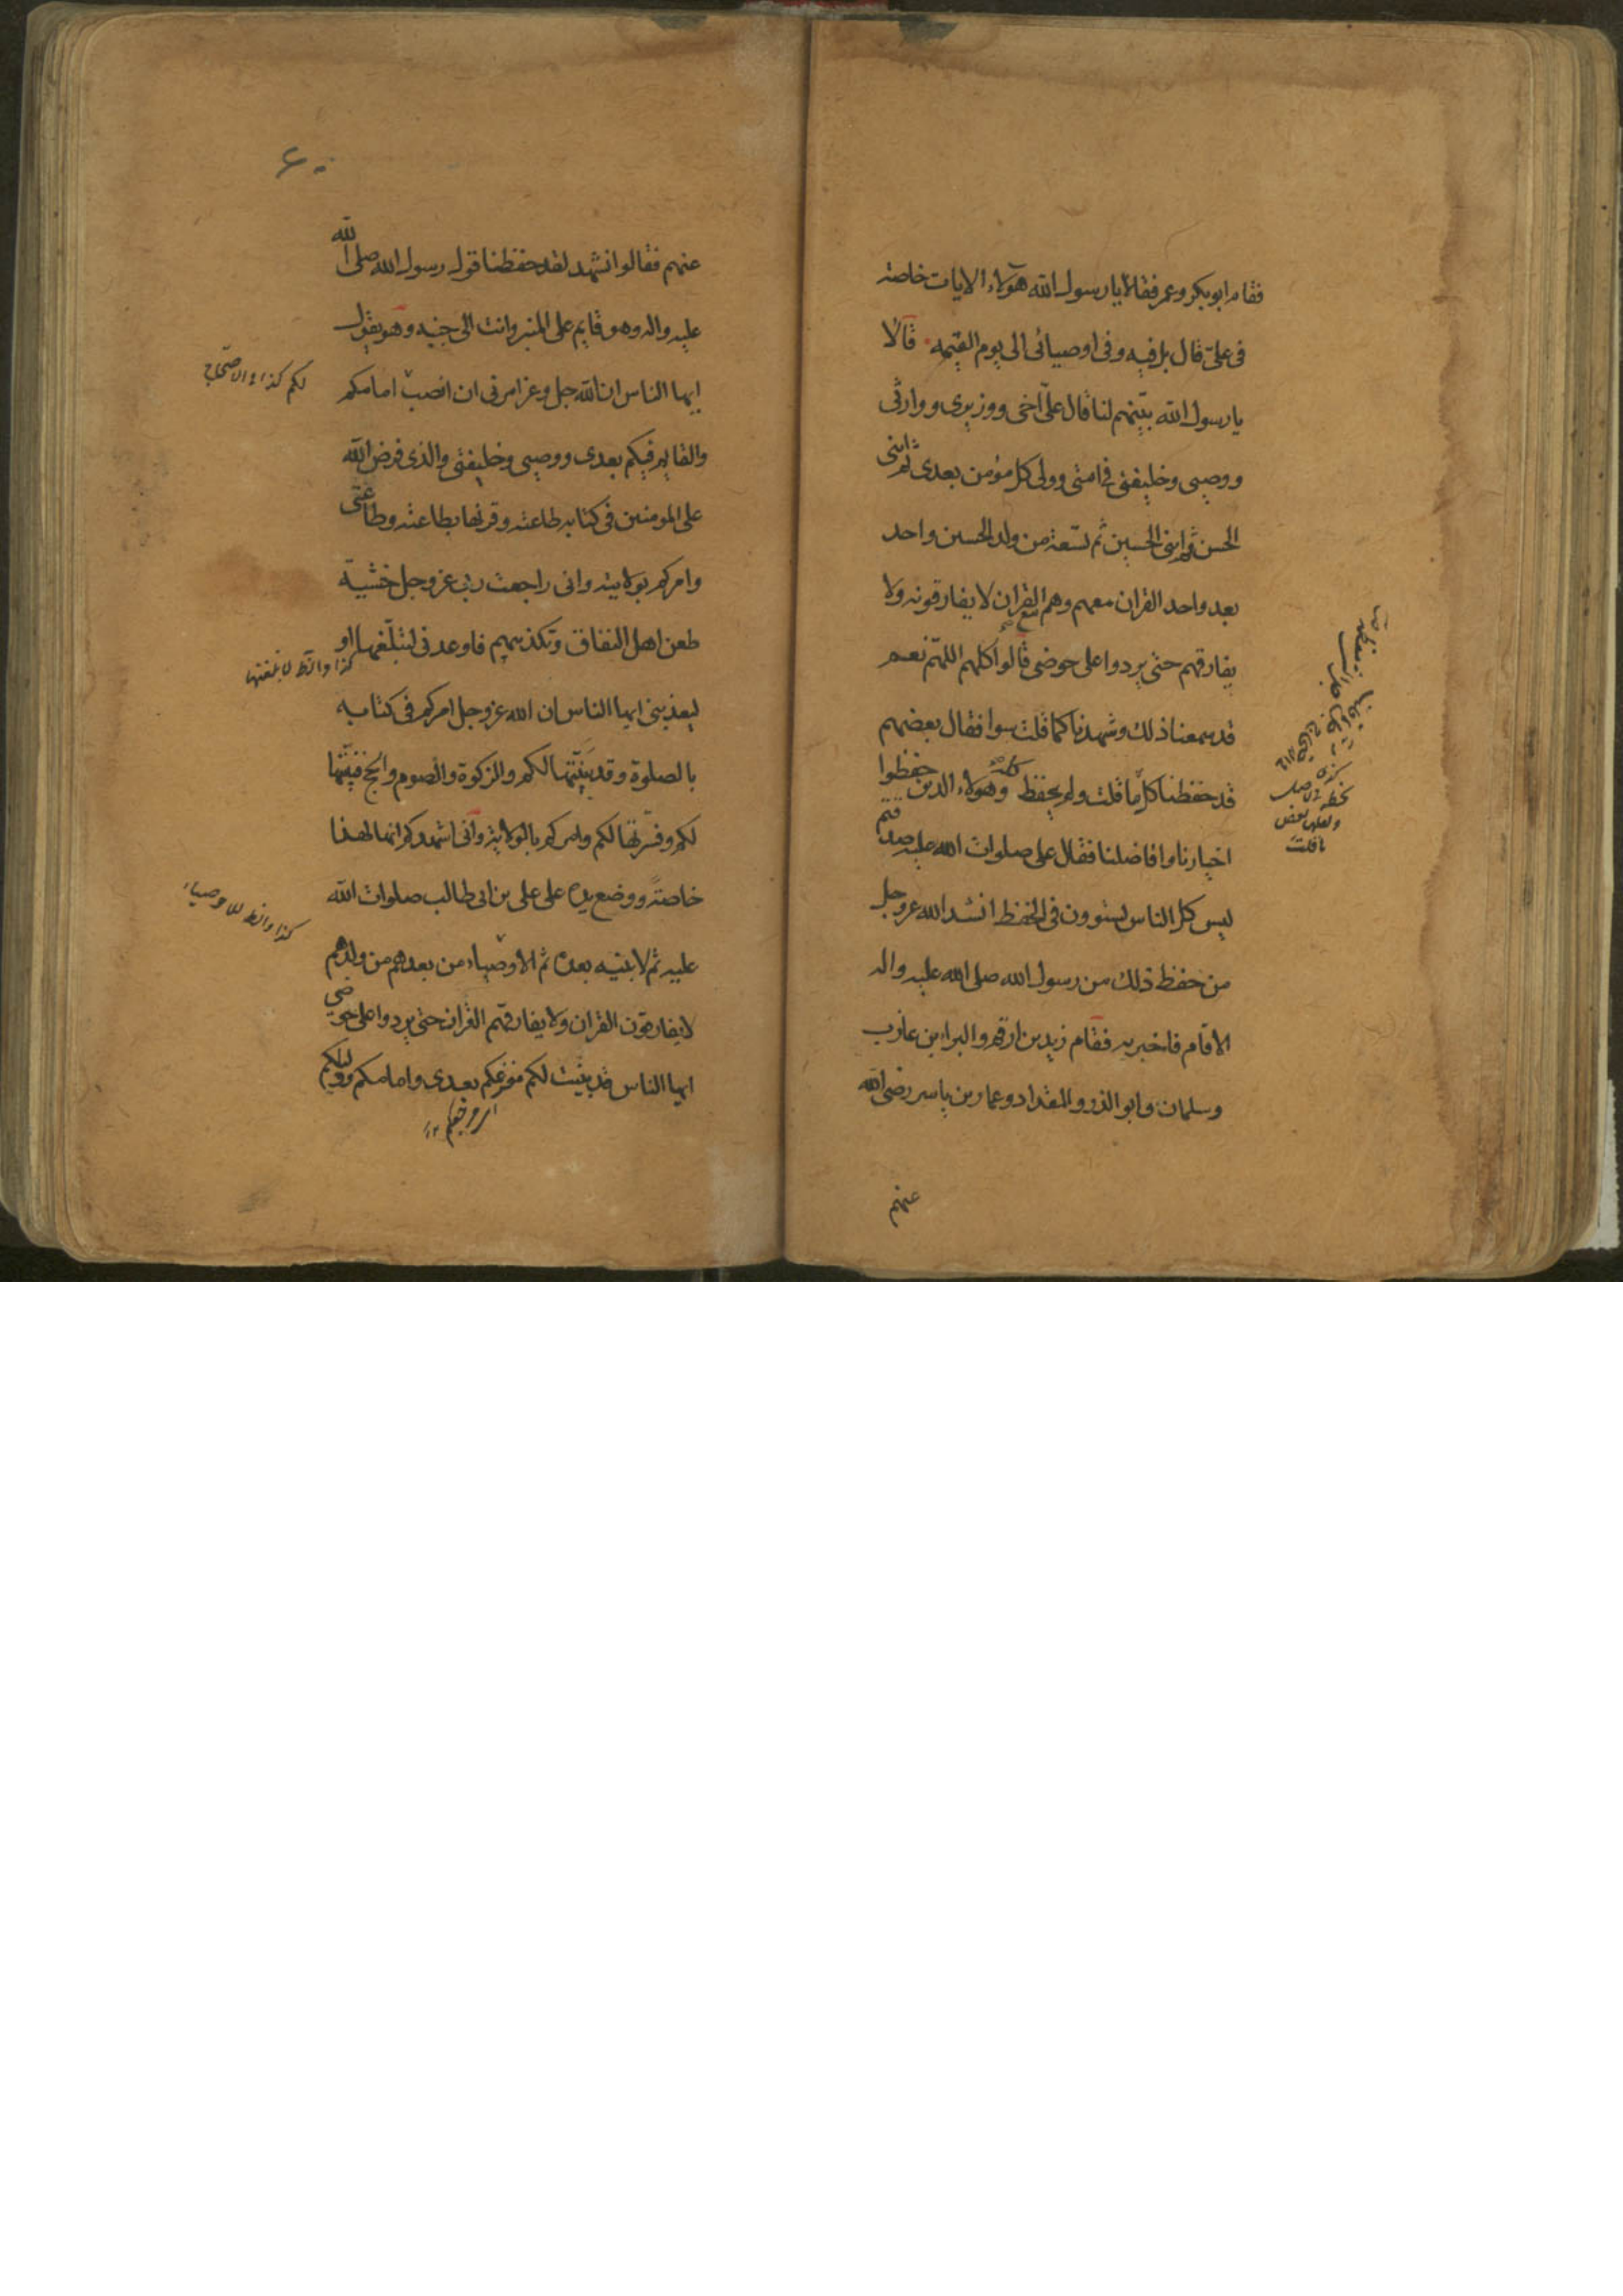 فقام ابو بكر وعمر فقالا يا رسول الله هؤلاء الايات خاصة
فى علىّ قال بل فيه وفى اوصيائى الى يوم القيمه قالا
يا رسول الله بيّنهم لنا قال علىّ اخى ووزيرى ووارثى
ووصيى وخليفتى فى امتى وولى كل مؤمن بعدى ثم ابنى
الحسن ثم ابنى الحسين ثم تسعة من ولد الحسين واحد
بعد واحد القران معهم وهم مع القران لا يفارقونه ولا
يفارقهم حتى يردوا على حوضى قالوا كلهم اللهمّ نعم
قد سمعنا ذلك وشهدنا كما قلت سوا فقال بعضهم
قد حفظنا كلّ ما قلت ولم يحفظ كله وهؤلاء الذين حفظوا
اخيارنا وافاضلنا فقال على صلوات الله عليه صدقتم
ليس كل الناس يستوون فى الحفظ انشد الله عز وجل
من حفظ ذلك من رسول الله صلى الله عليه واله
الا قام فاخبر به فقام زيد بن ارقم والبراء بن عازب
وسلمان وابو الذر والمقداد وعمار بن ياسر رضى الله
عنهم
بخطه فى الاصل
ولعله بعض
ما قلت
٦٠
عنهم فقالوا نشهد لقد حفظنا قول رسول الله صلى الله
عليه واله وهو قايم على المنبر وانت الى جنبه وهو يقول
ايها الناس ان الله جل وعز امرنى ان انصب امامكم
لكم كذا فى الاحتجاج
والقايم فيكم بعدى ووصيى وخليفتى والذى فرض الله
على المومنين فى كتابه طاعته وقرنها بطاعته وطاعتى
وامركم بولايته وانى راجعت ربى عز وجل خشية
طعن اهل النفاق وتكذيبهم فاوعدنى لتبلّغها او
كذا والظ لابلغنها
ليعذبنى ايها الناس ان الله عز وجل امركم فى كتابه
بالصلوة وقد بيّنتها لكم والزكوة والصوم والحج فبيّنتها
لكم وفسّرتها لكم وامركم بالولاية وانى اشهدكم انها لهذا
خاصةً ووضع يده على على بن ابى طالب صلوات الله
كذا والظ للاوصياء
عليه ثم لابنيه بعده ثم الاوصياء من بعدهم من ولدهم
لا يفارقون القران ولا يفارقهم القران حتى يردوا على حوضى
ايها الناس قد بينت لكم مفزعكم بعدى وامامكم ووليكم